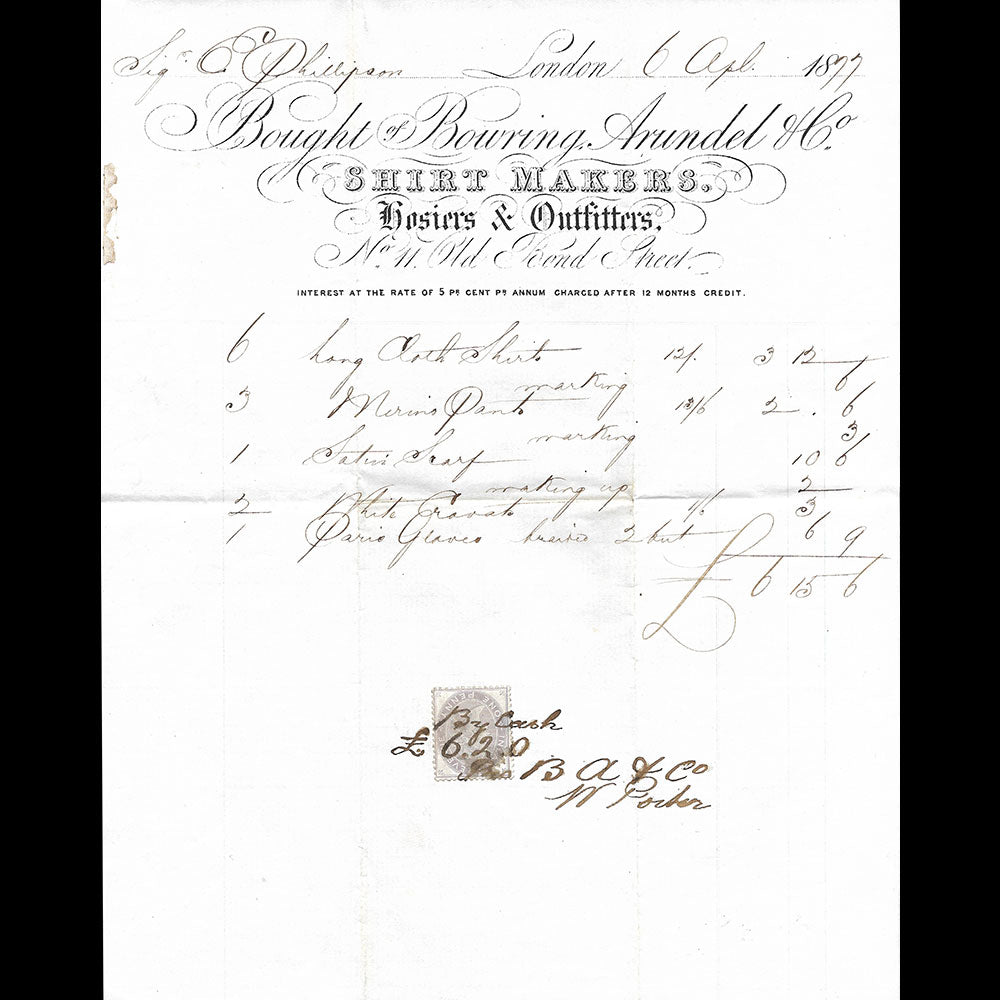 Sigr. E Phillipson London 6 Apl. 1877
Bought of Bowring, Arundel & Co.
SHIRT MAKERS.
Hosiers & Outfitters,
No. 11. Old Bond Street.
INTEREST AT THE RATE OF 5 PR CENT PR ANNUM CHARGED AFTER 12 MONTHS CREDIT.
6 Long Cloth Shirts 12/. 3 12 –
marking 6
3 Merino Pants 13/6 2 . 6
marking 3
1 Satin Scarf 10 6
making up 2
2 White Cravats 1/6 3
1 Paris Gloves braided 2 but 6 9
£ 6 15 6
ONE PENNY
By Cash
£ 6.2.0
Pro B A & Co
W Porter